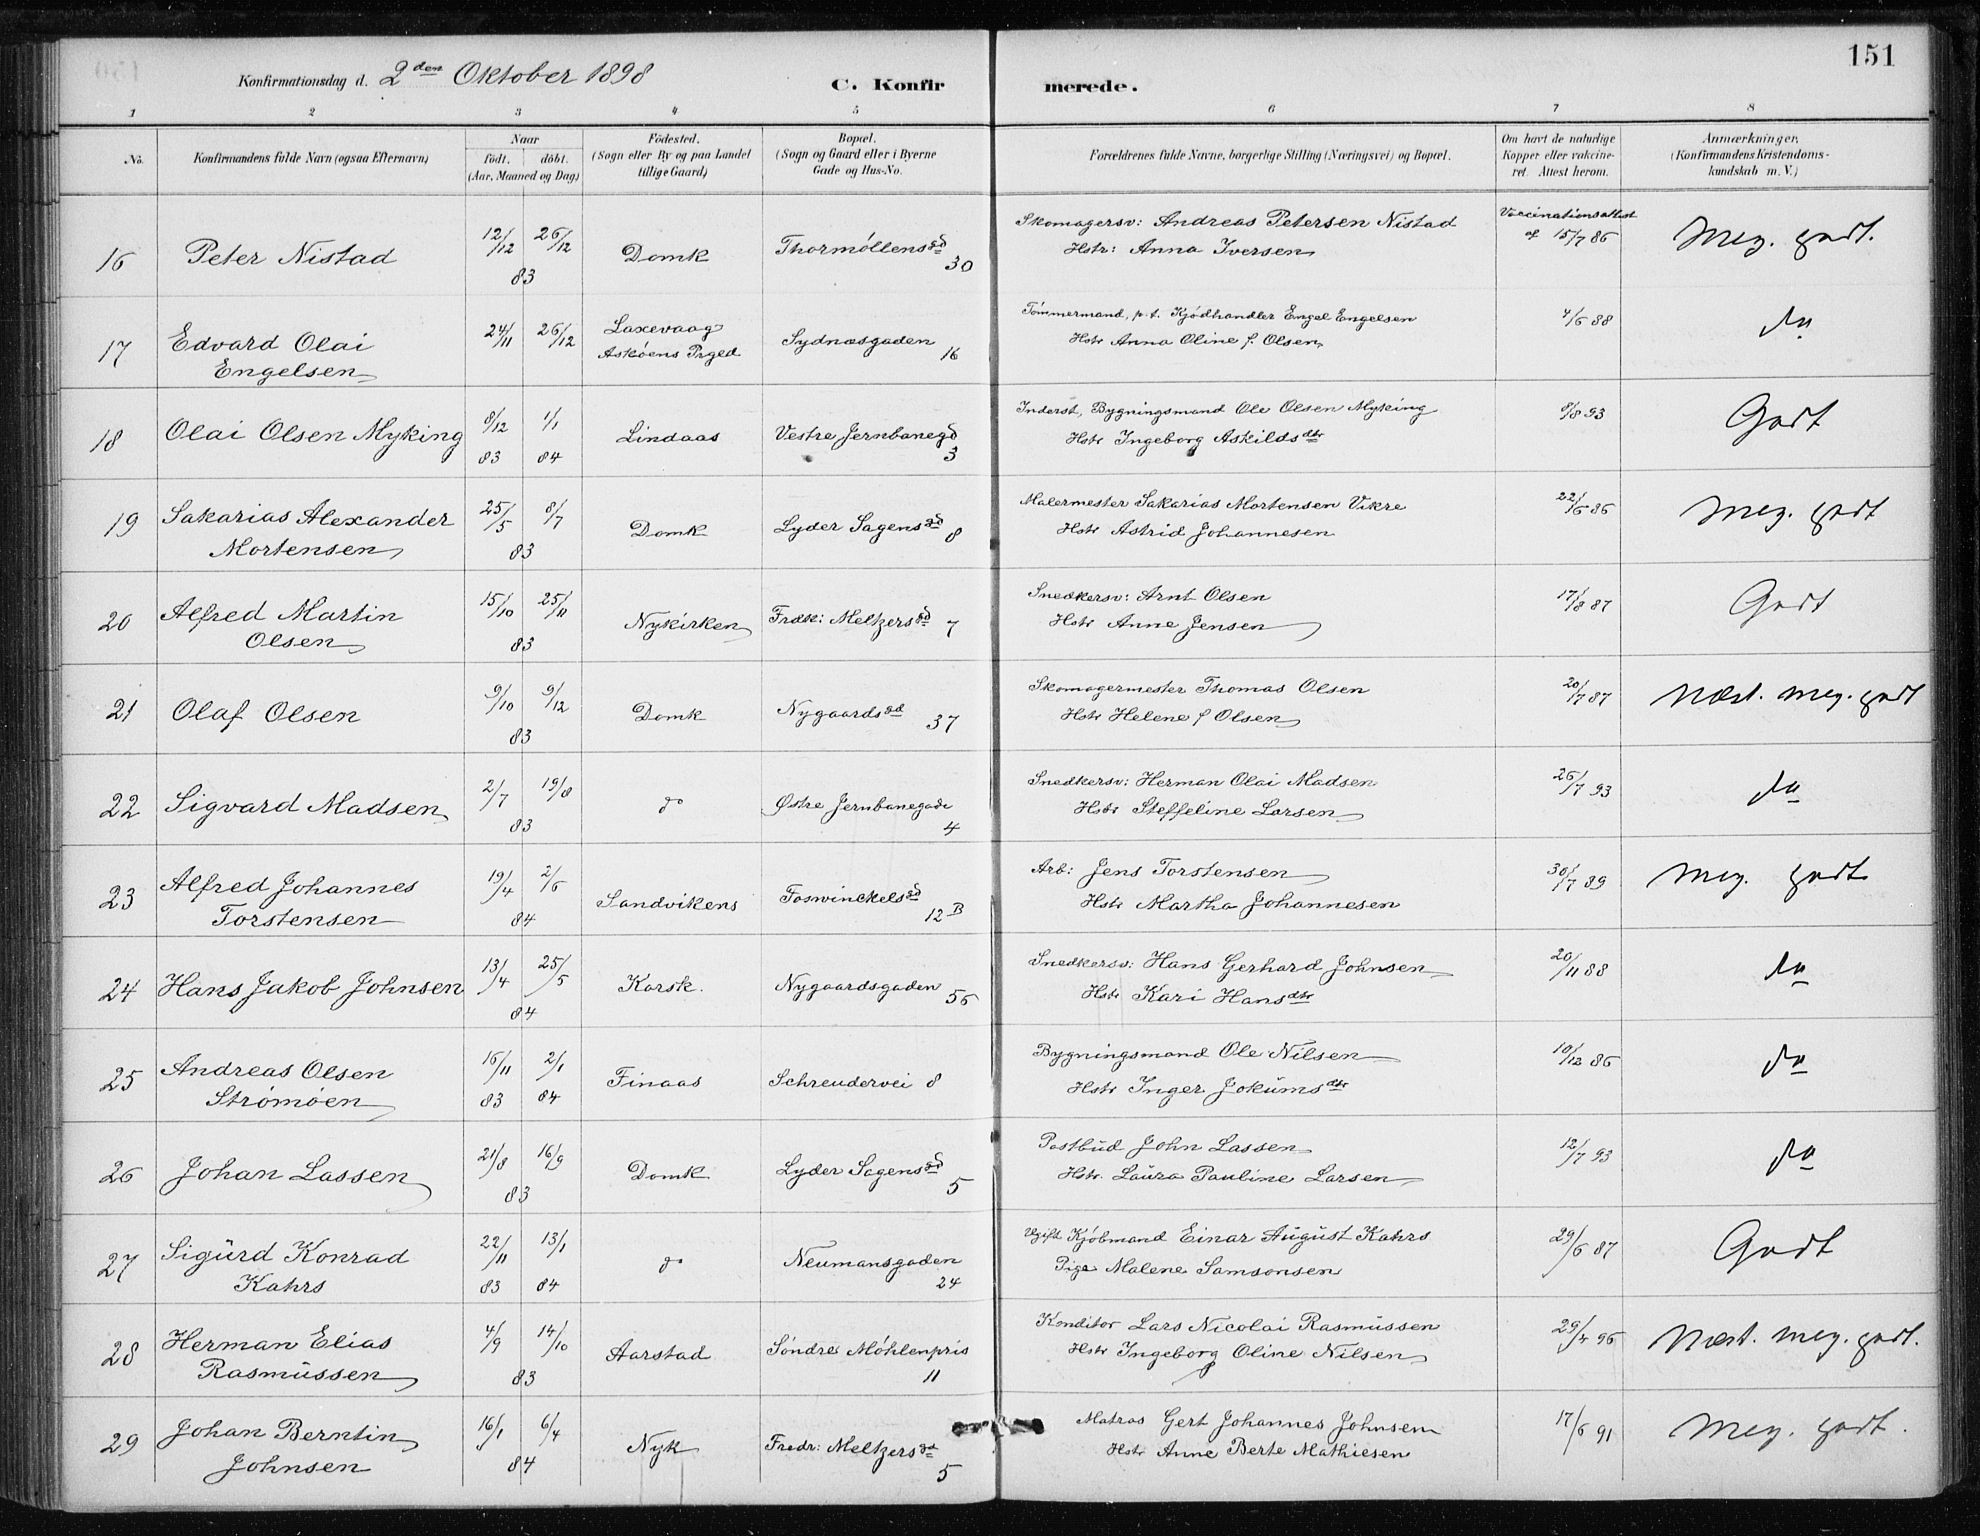 151
Konfirmationsdag d. 2den Oktober 1898
C. Konfirmerede.
1 2 3 4 5 6 7 8
No. | Konfirmandens fulde Navn (ogsaa Efternavn) | Naar födt. döbt. (Aar, Maaned og Dag) | Födested. (Sogn eller By og paa Landet tillige Gaard) | Bopæl. (Sogn og Gaard eller i Byerne Gade og Hus-No. | Forældrenes fulde Navne, borgerlige Stilling (Næringsvei) og Bopæl. | Om havt de naturlige Kopper eller vakcineret. Attest herom. | Anmærkninger, (Konfirmandens Kristendomskundskab m. V.)
16 Peter Nistad 12/12 26/12 83 Domk Thormøllensgd 30 Skomagersv: Andreas Petersen Nistad Hstr: Anna Iversen Vaccinationsattest af 15/7 86 Meg. godt.
17 Edvard Olai Engelsen 24/11 26/12 Laxevaag Askøens Prged Sydnæsgaden 16 Tømmermand, p.t. Kjødhandler Engel Engelsen Hstr Anna Oline f. Olsen 4/6 88 do
18 Olai Olsen Myking 8/12 83 1/1 84 Lindaas Vestre Jernbanegd 3 Inderst, Bygningsmand Ole Olsen Myking Hstr Ingeborg Askildsdtr 8/8 93 Godt
19 Sakarias Alexander Mortensen 25/5 8/7 83 Domk Lyder Sagensgd 8 Malermester Sakarias Mortensen Vikre Hstr Astrid Johannesen 22/6 86 Meg. godt
20 Alfred Martin Olsen 15/10 25/11 83 Nykirken Fredk: Meltzersgd 7 Snedkersv: Arnt Olsen Hstr Anne Jensen 17/8 87 Godt
21 Olaf Olsen 9/10 9/12 83 Domk Nygaardsgd 37 Skomagermester Thomas Olsen Hstr Helene f Olsen 20/7 87 Næst. meg. godt
22 Sigvard Madsen 2/7 19/8 83 do Østre Jernbanegade 4 Snedkersv: Herman Olai Madsen Hstr Steffeline Larsen 26/7 93 do
23 Alfred Johannes Torstensen 19/4 2/6 84 Sandvikens Foswinckelsgd 12 B Arb: Jens Torstensen Hstr Martha Johannesen 30/7 89 Meg. godt
24 Hans Jakob Johnsen 13/4 25/5 84 Korsk. Nygaardsgaden 56 Snedkersv: Hans Gerhard Johnsen Hstr Kari Hansdtr 20/11 88 do
25 Andreas Olsen Strømøen 16/11 83 2/1 84 Finaas Schreudervei 8 Bygningsmand Ole Nilsen Hstr Inger Jokumsdtr 10/12 86 do
26 Johan Lassen 21/8 16/9 83 Domk Lyder Sagensgd 5 Postbud John Lassen Hstr. Laura Pauline Larsen 12/7 93 do
27 Sigurd Konrad Kahrs 22/11 83 13/1 84 do Neumansgaden 24 Ugift Kjøbmand Einar August Kahrs Pige Malene Samsonsen 29/6 87 Godt
28 Herman Elias Rasmussen 4/9 14/10 83 Aarstad Søndre Møhlenpris 11 Konditor Lars Nicolai Rasmussen Hstr Ingeborg Oline Nilsen 29/4 96 Næst. meg. godt.
29 Johan Berntin Johnsen 16/1 6/4 84 Nyk Fredr: Meltzersgd 5 Matros Gert Johannes Johnsen Hstr Anne Berte Mathiesen 17/6 91 Meg. godt.